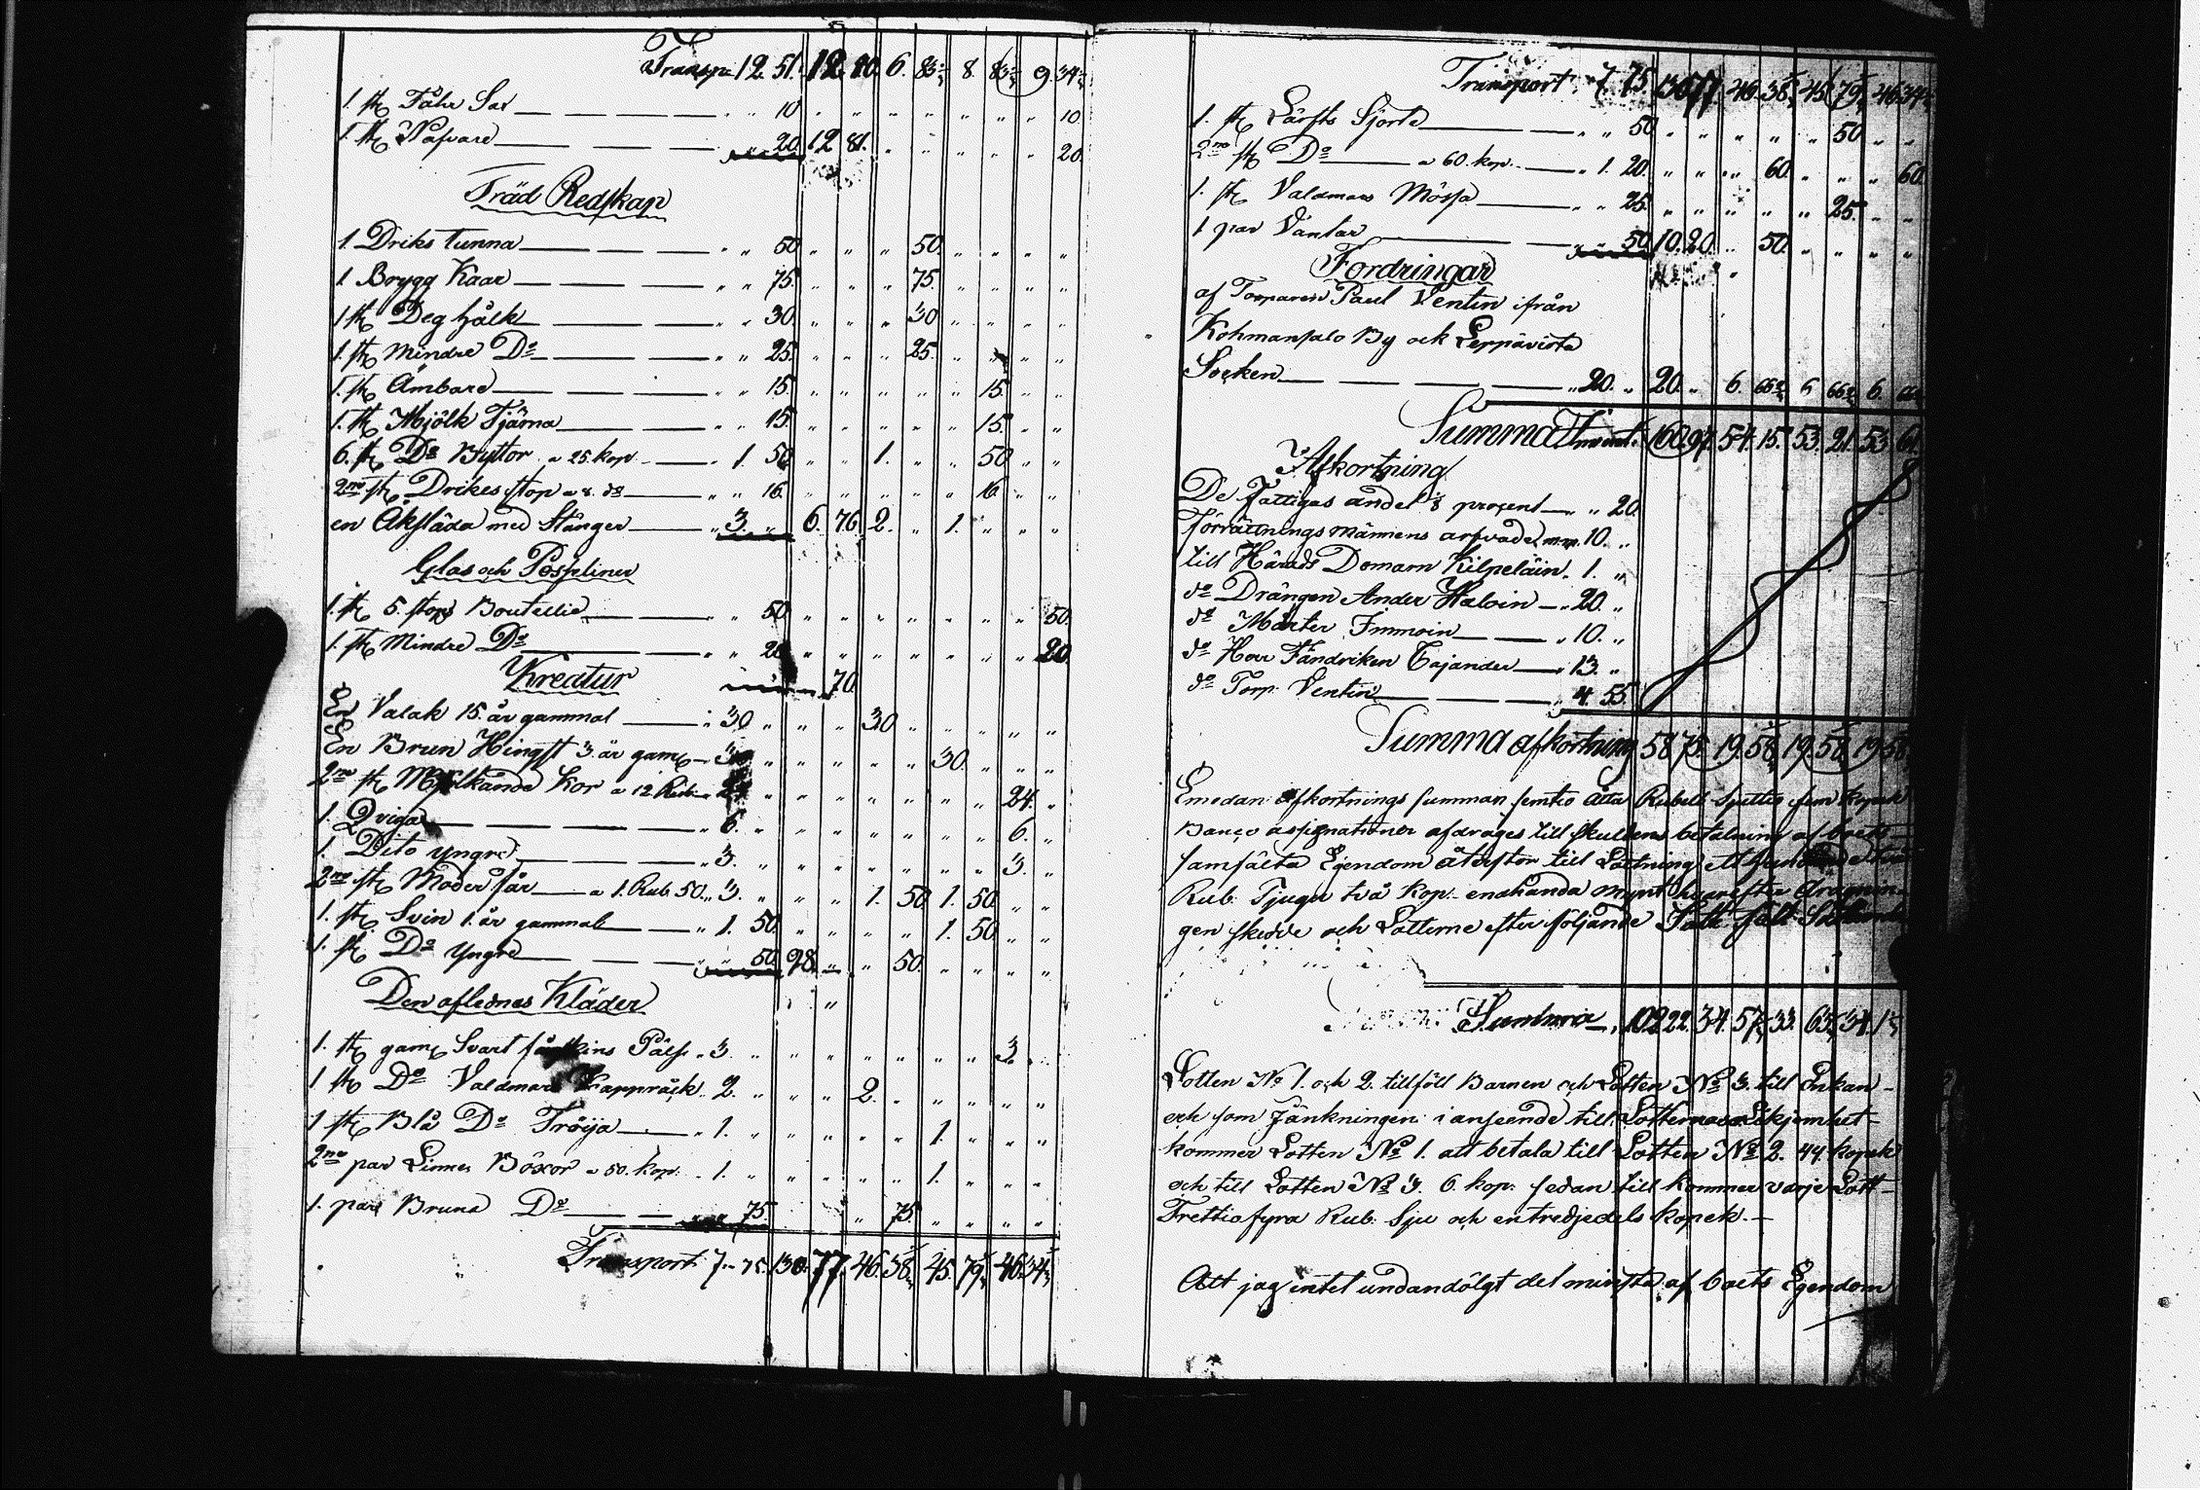 Transp. 12. 51. 12. 80. 6. 83 8. 83 9. 34
1. st. Fåhr Sax 10 10
1. st. Nafvare 20. 12 81. 20.
Träd Redskap
1. Driks tunna 50. 50.
1 Brygg Kaar 75. 75.
1 st. Deg hålk 30. 30
1. st. Mindre Do 25. 25.
1. st. Ämbare 15. 15.
1. st. Mjölk Tjärna 15. 15.
6. st. Do Byttor a 25. kop. 1. 50 1. 50
2ne st. Drikes stop a 8. do 16. 16.
en Åksläda med Stånger 3. 6. 76. 2. 1.
Glas och Posslinor
1. st. 5. stops Boutellie 50. 50.
1. st. Mindre Do 20 20.
Kreatur 70.
En Valak 15. år gammal 30 30
En Brun Hingst 3 år gam. 30 30.
2ne st. Mjölkande Kor a 12 Rub. 24 24.
1. Qviga 6. 6.
1. Dito yngre 3. 3.
2ne st. Moder får a 1. Rub. 50. 3. 1. 50 1. 50
1. st. Svin 1. år gammalt 1. 50. 1. 50
1. st. Do yngre 50. 98. 50.
Den aflednes Kläder
1. st. gam. Svart fårskins Päls 3. 3.
1 st. Do Valdmars Kappråck 2. 2.
1 st. Blå Do Tröija 1. 1.
2ne par Linnes Böxor a 50. kop. 1. 1.
1. par Bruna Do 75. 75.
Transport 7. 75. 130. 77. 46. 38 45. 79 46. 34
Transport 7. 75. 130 77. 46. 38 45. 79 46 34
1. st. Lärfts Sjorta 50 50
2ne st. Do a 60. kop. 1. 20. 60. 60.
1. st. Valdmars Mössa 25. 25.
1 par Vantar 50. 10. 20. 50.
Fordringar
af Torparen Paul Ventin ifrån
Kohmansalo By och Leppävirta
Socken 20. 20. 6. 66 6 66 6. 66
Summa Invent. 160. 97. 54. 15. 53. 21. 53 61.
Afkortning
De Fattigas andel 8 procent 20.
förrättnings männens arfvode 10.
till Härads Domarn Kilpeläin. 1.
do Drängen Ander Haloin 20.
do Mårten Immoin 10.
do Herr Fändriken Cajander 13.
do Torp. Ventin 4. 55.
Summa afkortning 58 75. 19. 58 19. 58 19 58
Emedan afkortnings summan femtio åtta Rubell Sjuttio fem kopek
Banco assignationer afdrages till skuldens betalning af boets
samfälta Egendom återstår till Lottning
Rub. Tjugu två Kop. enahanda mynt hvarefter dragnin
gen skedde och Lotterne efter följande Sätt
Summa 102 22. 34. 57 33. 63 34. 1
Lotten No 1. och 2. tillföll Barnen och Lotten No 3. till Enkan
och som Jämkningen i anseende till Lotternes Olikjemhet
kommer Lotten No 1. att betala till Lotten No 2. 44 kopek
och till Lotten No 3. 6. kop. sedan till kommer varje Lott
Trettiofyra Rub. Sju och en tredjedels kopek.
Att jag intet undandölgt det minsta af boets Egendom